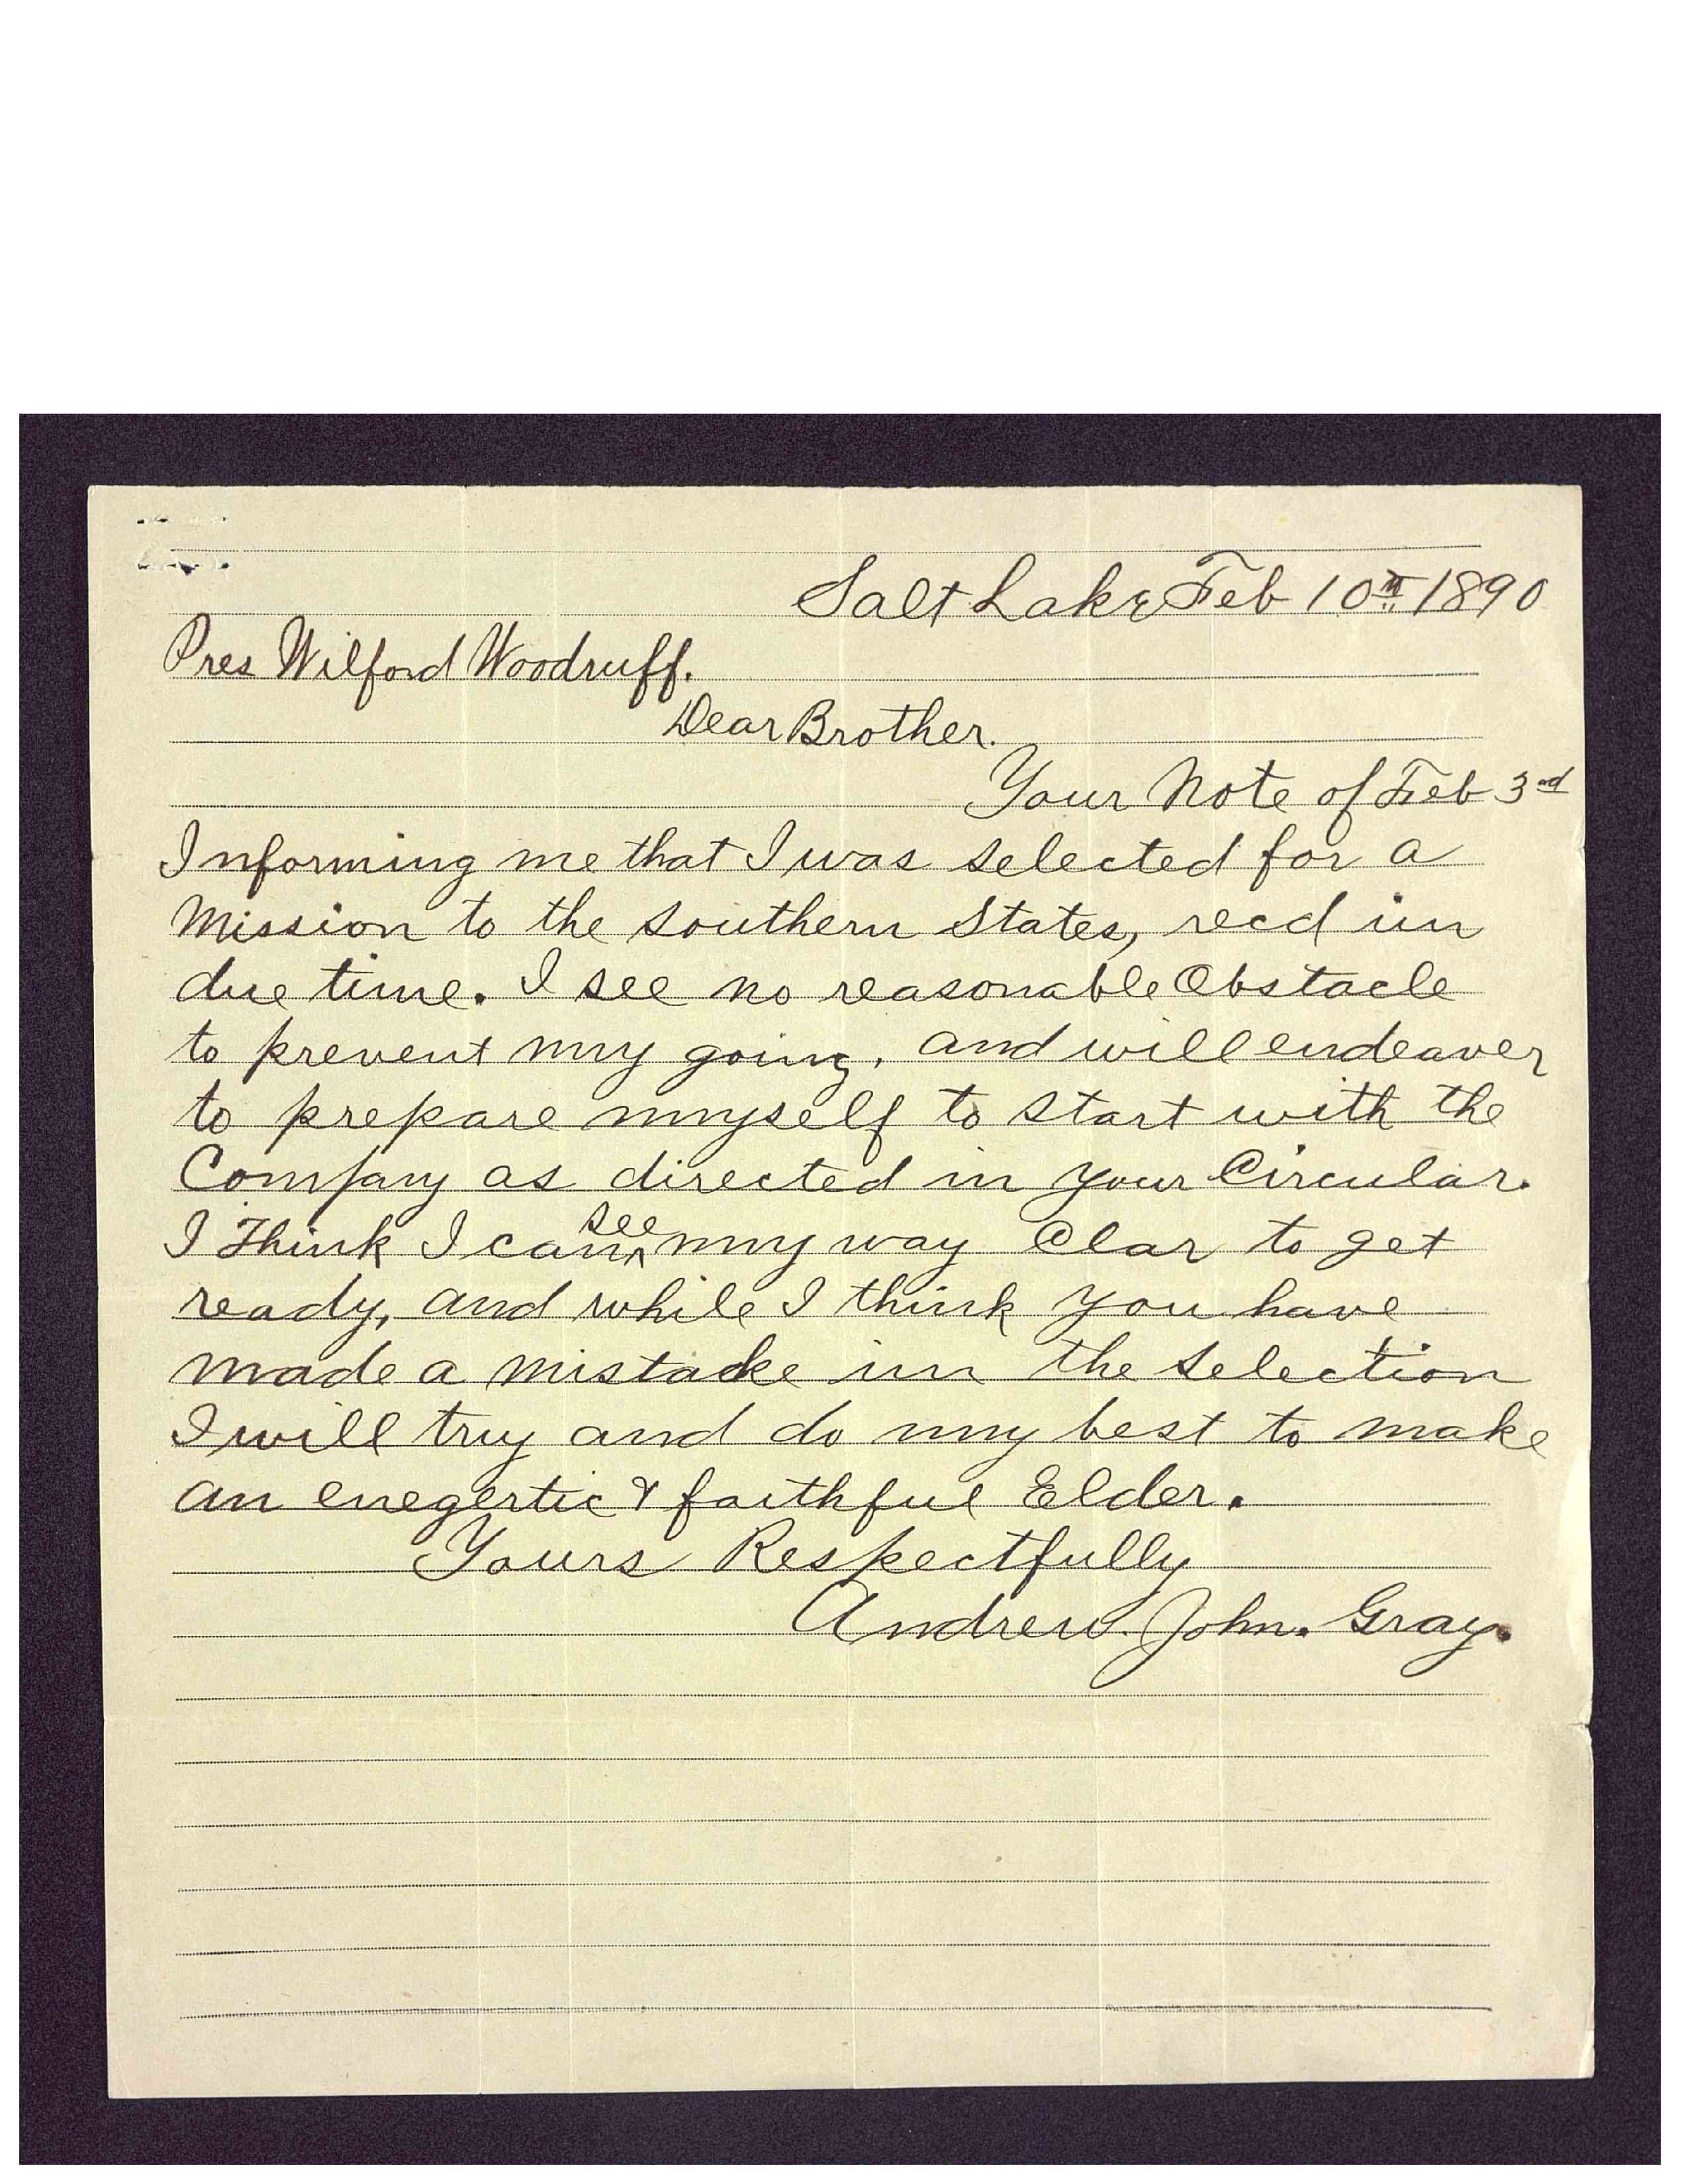 Salt Lake Feb 10th 1890
Pres Wilford Woodruff.
Dear Brother.
Your Note of Feb 3rd
Informing me that I was selected for a
Mission to the southern States, recd in
due time. I see no reasonable Obstacle
to prevent my going, and will endeaver
to prepare myself to start with the
Company as directed in your Circular.
I Think I can see my way Clar to get
ready, and while I think you have
made a mistacke in the selection
I will try and do my best to make
an enegertic & faithful Elder.
Yours Respectfully
Andrew. John. Gray.